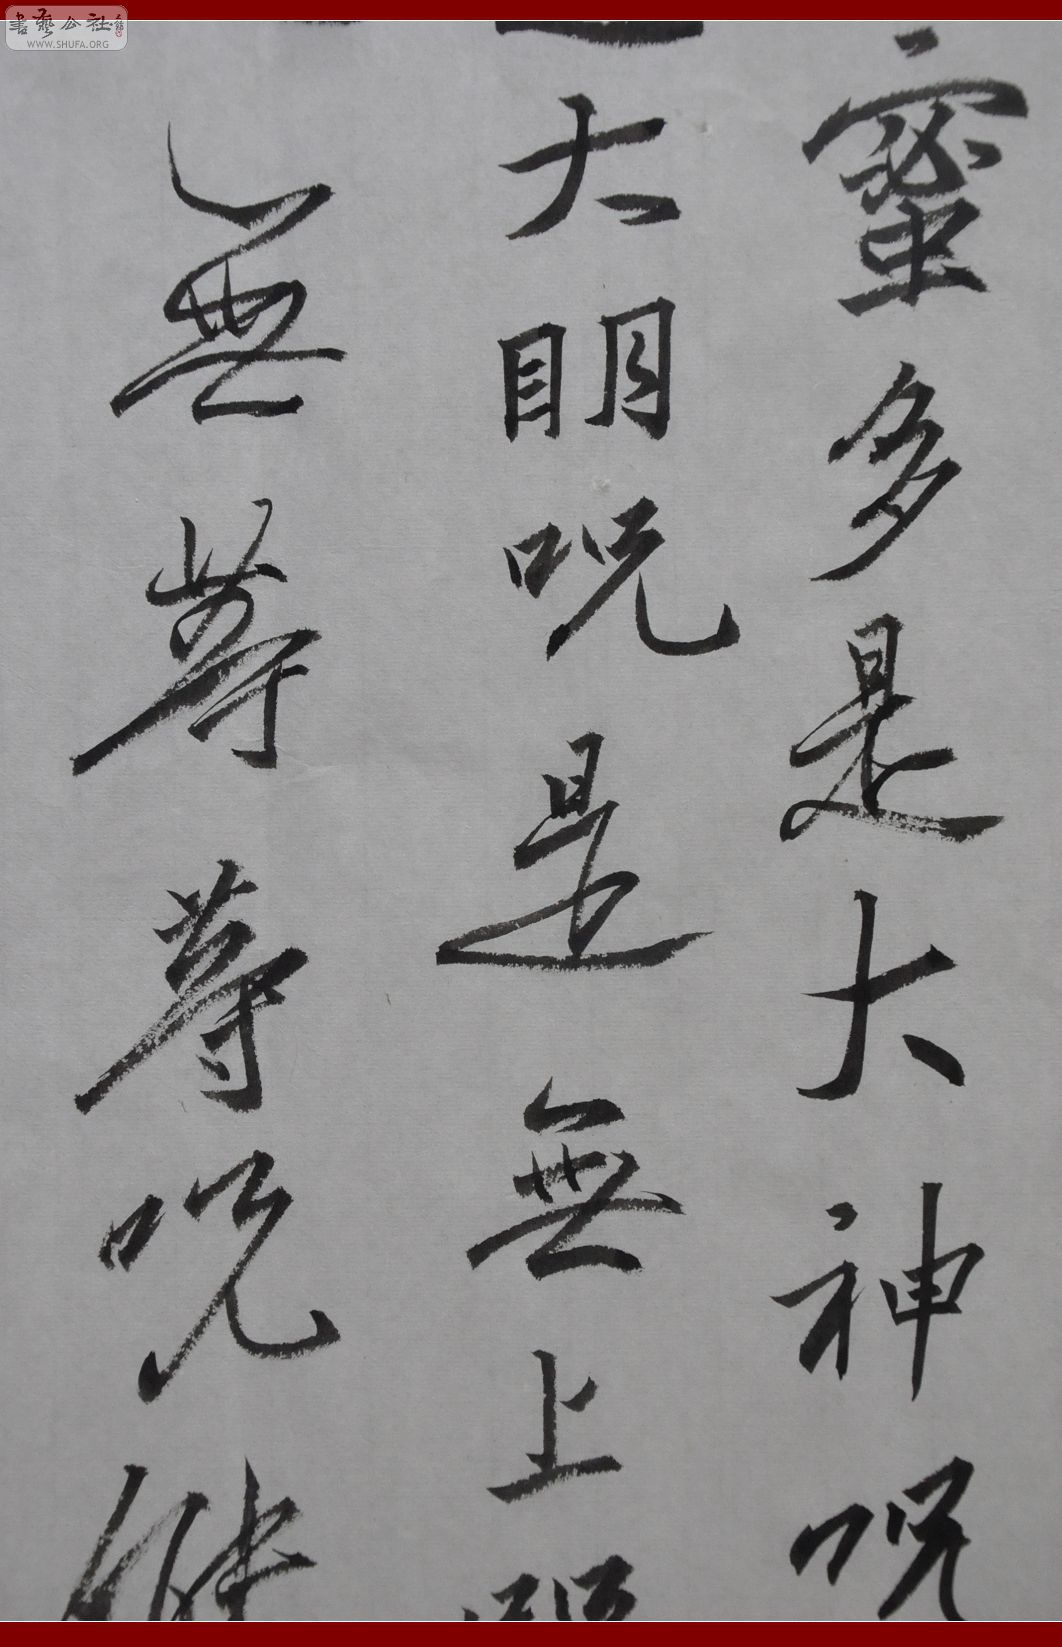 蜜多是大神呪
大眀呪是無上呪
無等等呪能
書藝公社
WWW.SHUFA.ORG